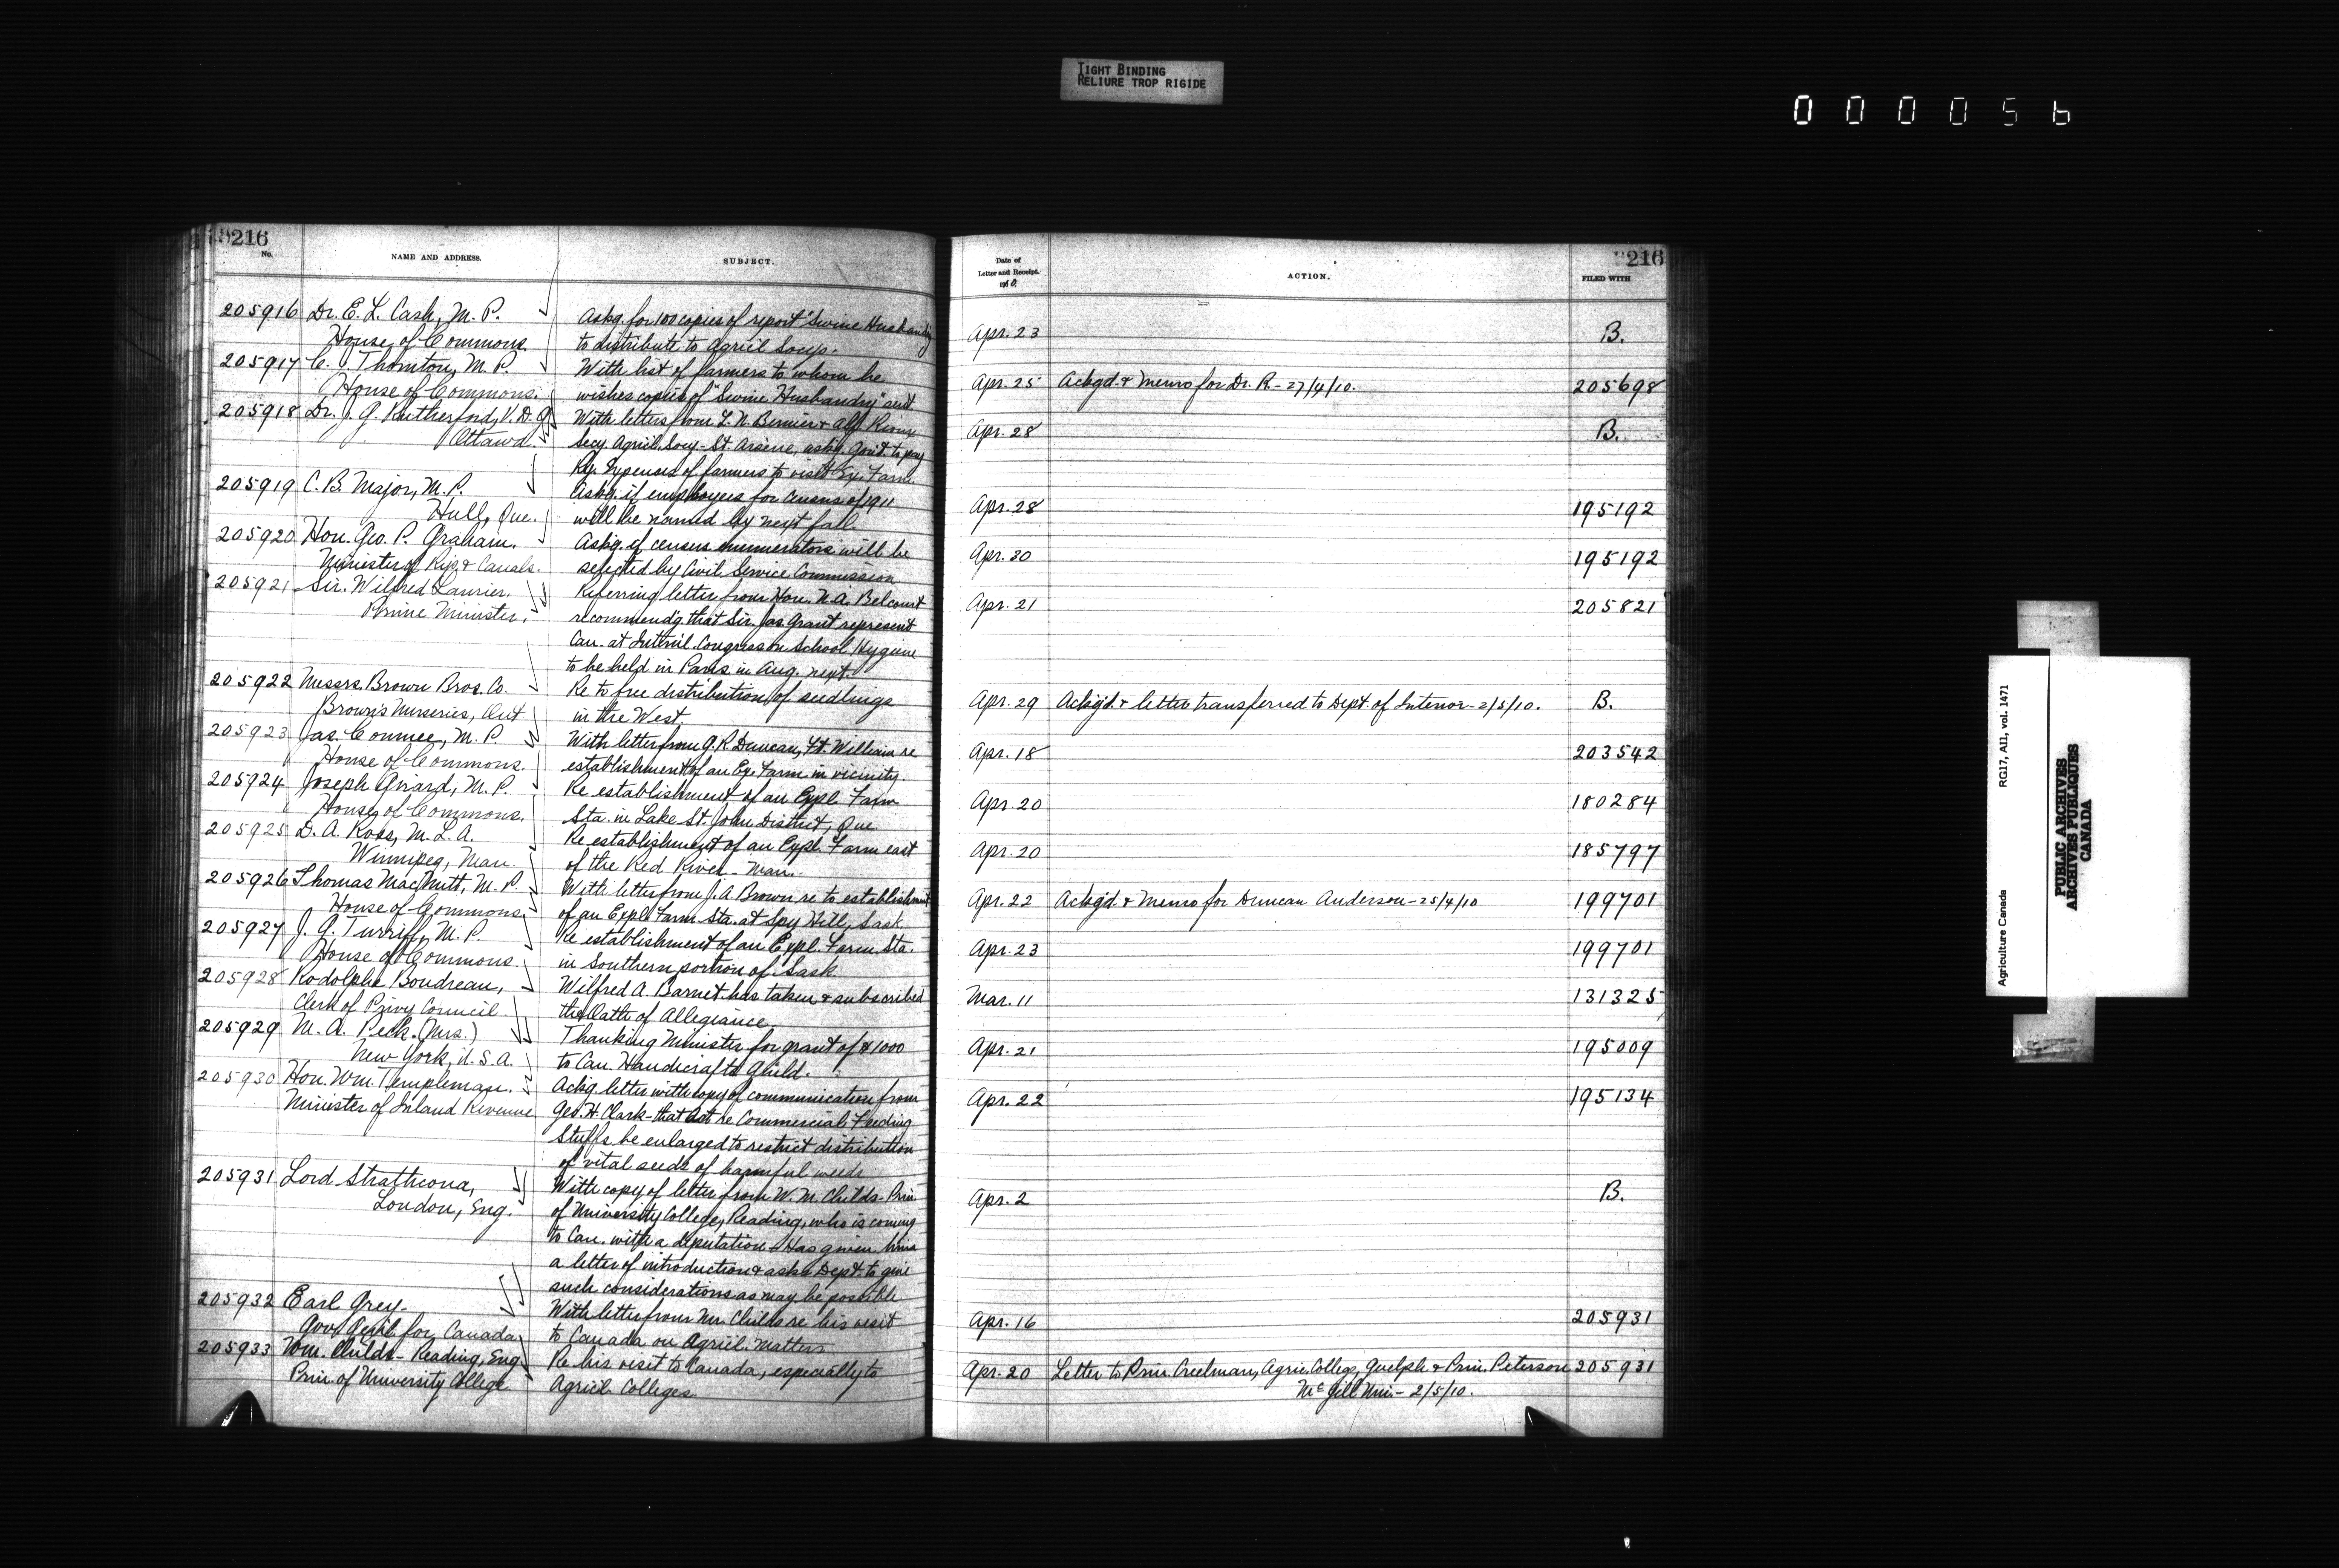 TIGHT BINDING
RELIURE TROP RIGIDE
000056
216
No.
NAME AND ADDRESS.
SUBJECT.
205916 Dr. E. L. Cash, M. P. Askg. for 100 copies of report "Swine Husbandry
House of Commons to distribute to Agricl Socys.
205917 C. J. Thornton, M. P. With list of farmers to whom he
House of Commons. wishes copies of "Swine Husbandry" sent
205918 Dr. J. G. Rutherford, V. D. G. With letters from L. N. Bernier & Alf. Rioux
Ottawa. Secy. Agricl. Socy - St. Arsene, askg. Govt. to pay
Ry. Expenses of farmers to visit Ex. Farm
205919 C. B. Major, M. P. Askg. if employees for census of 1911
Hull, Que. will be named by next fall.
205920 Hon. Geo. P. Graham, Askg. if census enumerators will be
Minister of Rys. & Canals. selected by Civil Service Commission
205921 Sir. Wilfred Laurier. Referring letter from Hon. N. A. Belcourt
Prime Minister. recommendg that Sir. Jas. Grant represent
Can. at Internl. Congress on School Hygiene
to be held in Paris in Aug. next.
205922 Messrs. Brown Bros. Co. Re to free distribution of seedlings
Brown's Nurseries, Ont in the West.
205923 Jas. Conmee, M. P. With letter from G. R. Duncan, Ft. William re
House of Commons. establishment of an Ex. Farm in vicinity
205924 Joseph Girard, M. P. Re establishment of an Expl. Farm
House of Commons. Sta. in Lake St. John District, Que
205925 D. A. Ross, M. L. A. Re establishment of an Expl. Farm east
Winnipeg, Man. of the Red River - Man.
205926 Thomas MacNutt, M. P. With letter from J. A. Brown re to establishment
House of Commons. of an Expl. Farm Sta. at Spy Hill, Sask.
205927 J. G. Turriff, M. P. Re establishment of an Expl. Farm Sta.
House of Commons. in Southern portion of Sask.
205928 Rodolphe Boudreau, Wilfred A. Barnet has taken & subscribed
Clerk of Privy Council the Oath of Allegiance.
205929 M. A. Peck. (Mrs.) Thanking Minister for grant of $1000
New York, U. S. A. to Can. Handicrafts Guild.
205930 Hon. Wm. Templeman. Ackg. letter with copy of communication from
Minister of Inland Revenue Geo. H. Clark - that Act re Commercial Feeding
Stuffs be enlarged to restrict distribution
of vital seeds of harmful weeds
205931 Lord Strathcona, With copy of letter from W. M. Childs - Prin.
London, Eng. of University College, Reading, who is coming
to Can. with a deputation - Has given him
a letter of introduction & asks Dept. to give
such considerations as may be possible
205932 Earl Grey. With letter from Mr. Childs re his visit
Gov. Genl. for Canada to Canada on Agricl. matters
205933 Wm. Childs - Reading, Eng. Re his visit to Canada, especially to
Prin. of University College Agricl. Colleges
216
Date of
Letter and Receipt.
1910.
ACTION.
FILED WITH
Apr. 23 B.
Apr. 25 Ackgd. & Memo for Dr. R. - 27/4/10. 205698
Apr. 28 B.
Apr. 28 195192
Apr. 30 195192
Apr. 21 205821
Apr. 29 Ackgd. & letter transferred to Dept. of Interior - 2/5/10. B.
Apr. 18 203542
Apr. 20 180284
Apr. 20 185797
Apr. 22 Ackgd. & Memo for Duncan Anderson - 25/4/10 199701
Apr. 23 199701
Mar. 11 131325
Apr. 21 195009
Apr. 22 195134
Apr. 2 B.
Apr. 16 205931
Apr. 20 Letter to Prin. Creelman, Agric. College, Guelph & Prin. Peterson 205931
McGill Uni. - 2/5/10.
Agriculture Canada RG17, AII, vol. 1471
PUBLIC ARCHIVES
ARCHIVES PUBLIQUES
CANADA